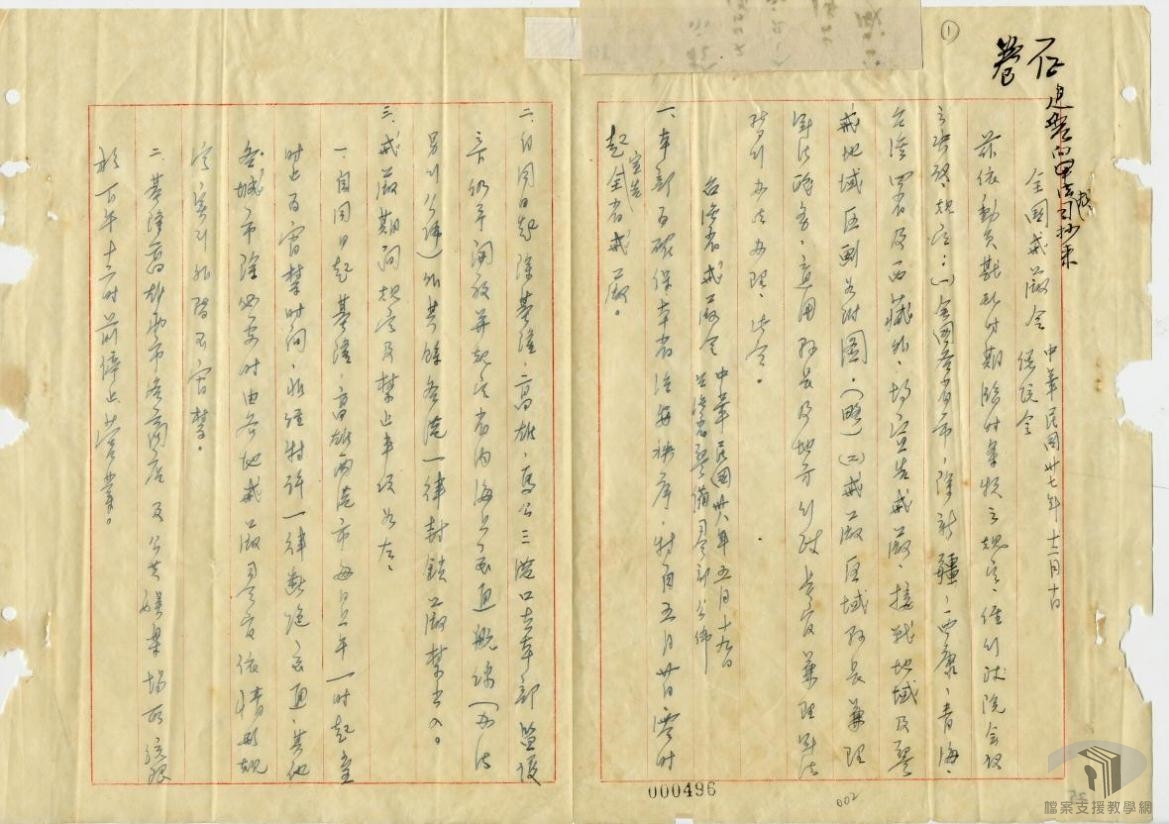 ①
存卷
全國戒嚴令 中華民國卅七年十二月十日 總統令
茲依動員戡亂時期臨時條款之規定,經行政院會議
之決議,規定:(一)全國各省市,除新疆、西康、青海、
台灣四省及西藏外,均宣告戒嚴,接戰地域及警
戒地域區劃如附圖。(略)(二)戒嚴區域內長兼理
軍法
行辦法辦理,此令。
台灣省戒嚴令 中華民國卅八年五月十九日 台灣省警備司令部公佈
一、本部為確保本省治安秩序,特自五月廿日零時
起宣告全省戒嚴。
二、自同日起除基隆、高雄、馬公三港口在本部監護
之下仍予開放并規定省內海上交通航線(辦法
另行公佈)外其餘各港一律封鎖嚴禁出入。
三、戒嚴期間規定及禁止事項如左:
一、自同日起基隆、高雄兩港市每日上午一時起至
時止為宵禁時間,非經特許一律斷絕交通,其他
各城市除必要時由各地戒嚴司令官依情形規
定實行外暫不宵禁。
二、基隆高雄兩市各商店及公共娛樂場所統限
於下午十二時前停止營業。
000496
002
35
檔案支援教學網